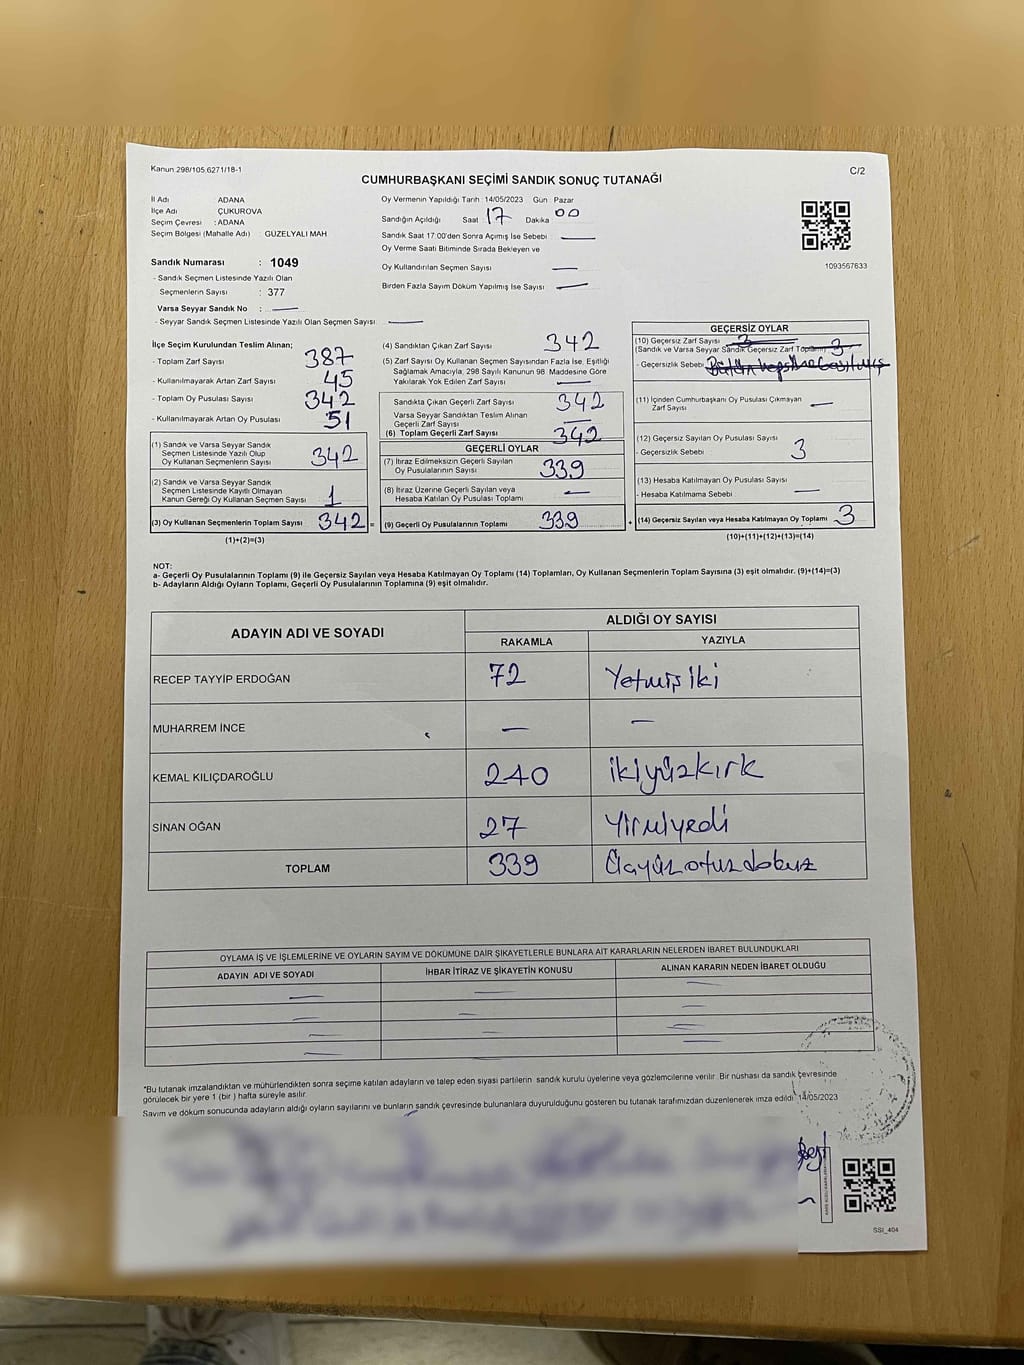 Kanun 298/105 6271/18-1
C/2
CUMHURBAŞKANI SEÇİMİ SANDIK SONUÇ TUTANAĞI
İl Adı ADANA
İlçe Adı ÇUKUROVA
Seçim Çevresi : ADANA
Seçim Bölgesi (Mahalle Adı) : GÜZELYALI MAH
Sandık Numarası : 1049
- Sandık Seçmen Listesinde Yazılı Olan
Seçmenlerin Sayısı : 377
Varsa Seyyar Sandık No : —
- Seyyar Sandık Seçmen Listesinde Yazılı Olan Seçmen Sayısı —
Oy Vermenin Yapıldığı Tarih 14/05/2023 Gün Pazar
Sandığın Açıldığı Saat 17 Dakika 00
Sandık Saat 17:00'den Sonra Açılmış İse Sebebi —
Oy Verme Saati Bitiminde Sırada Bekleyen ve
Oy Kullandırılan Seçmen Sayısı —
Birden Fazla Sayım Döküm Yapılmış İse Sayısı —
1093567633
İlçe Seçim Kurulundan Teslim Alınan;
- Toplam Zarf Sayısı 387
- Kullanılmayarak Artan Zarf Sayısı 45
- Toplam Oy Pusulası Sayısı 342
- Kullanılmayarak Artan Oy Pusulası 51
(1) Sandık ve Varsa Seyyar Sandık
Seçmen Listesinde Yazılı Olup
Oy Kullanan Seçmenlerin Sayısı 342
(2) Sandık ve Varsa Seyyar Sandık
Seçmen Listesinde Kayıtlı Olmayan
Kanun Gereği Oy Kullanan Seçmen Sayısı 1
(3) Oy Kullanan Seçmenlerin Toplam Sayısı 342 =
(1)+(2)=(3)
(4) Sandıktan Çıkan Zarf Sayısı 342
(5) Zarf Sayısı Oy Kullanan Seçmen Sayısından Fazla İse, Eşitliği
Sağlamak Amacıyla, 298 Sayılı Kanunun 98. Maddesine Göre
Yakılarak Yok Edilen Zarf Sayısı —
Sandıkta Çıkan Geçerli Zarf Sayısı 342
Varsa Seyyar Sandıktan Teslim Alınan
Geçerli Zarf Sayısı —
(6) Toplam Geçerli Zarf Sayısı 342
GEÇERLİ OYLAR
(7) İtiraz Edilmeksizin Geçerli Sayılan
Oy Pusulalarının Sayısı 339
(8) İtiraz Üzerine Geçerli Sayılan veya
Hesaba Katılan Oy Pusulası Toplamı —
(9) Geçerli Oy Pusulalarının Toplamı 339 +
GEÇERSİZ OYLAR
(10) Geçersiz Zarf Sayısı 3
(Sandık ve Varsa Seyyar Sandık Geçersiz Zarf Toplamı) 3
- Geçersizlik Sebebi
(11) İçinden Cumhurbaşkanı Oy Pusulası Çıkmayan
Zarf Sayısı —
(12) Geçersiz Sayılan Oy Pusulası Sayısı 3
- Geçersizlik Sebebi
(13) Hesaba Katılmayan Oy Pusulası Sayısı
- Hesaba Katılmama Sebebi —
(14) Geçersiz Sayılan veya Hesaba Katılmayan Oy Toplamı 3
(10)+(11)+(12)+(13)=(14)
NOT:
a- Geçerli Oy Pusulalarının Toplamı (9) ile Geçersiz Sayılan veya Hesaba Katılmayan Oy Toplamı (14) Toplamları, Oy Kullanan Seçmenlerin Toplam Sayısına (3) eşit olmalıdır. (9)+(14)=(3)
b- Adayların Aldığı Oyların Toplamı, Geçerli Oy Pusulalarının Toplamına (9) eşit olmalıdır.
ADAYIN ADI VE SOYADI
ALDIĞI OY SAYISI
RAKAMLA YAZIYLA
RECEP TAYYİP ERDOĞAN 72 Yetmiş iki
MUHARREM İNCE — —
KEMAL KILIÇDAROĞLU 240 ikiyüzkırk
SİNAN OĞAN 27 Yirmiyedi
TOPLAM 339 Üçyüzotuzdokuz
OYLAMA İŞ VE İŞLEMLERİNE VE OYLARIN SAYIM VE DÖKÜMÜNE DAİR ŞİKAYETLERLE BUNLARA AİT KARARLARIN NELERDEN İBARET BULUNDUKLARI
ADAYIN ADI VE SOYADI İHBAR İTİRAZ VE ŞİKAYETİN KONUSU ALINAN KARARIN NEDEN İBARET OLDUĞU
— — —
— — —
— — —
— — —
*Bu tutanak imzalandıktan ve mühürlendikten sonra seçime katılan adayların ve talep eden siyasi partilerin sandık kurulu üyelerine veya gözlemcilerine verilir. Bir nüshası da sandık çevresinde
görülecek bir yere 1 (bir) hafta süreyle asılır.
Sayım ve döküm sonucunda adayların aldığı oyların sayılarını ve bunların sandık çevresinde bulunanlara duyurulduğunu gösteren bu tutanak tarafımızdan düzenlenerek imza edildi. 14/05/2023
SSI_404